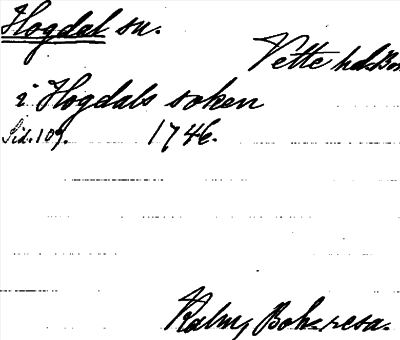 Hogdal sn.
Vette hd. Boh
i Hogdals soken
Sid. 109. 1746.
Kalm, Boh. resa.